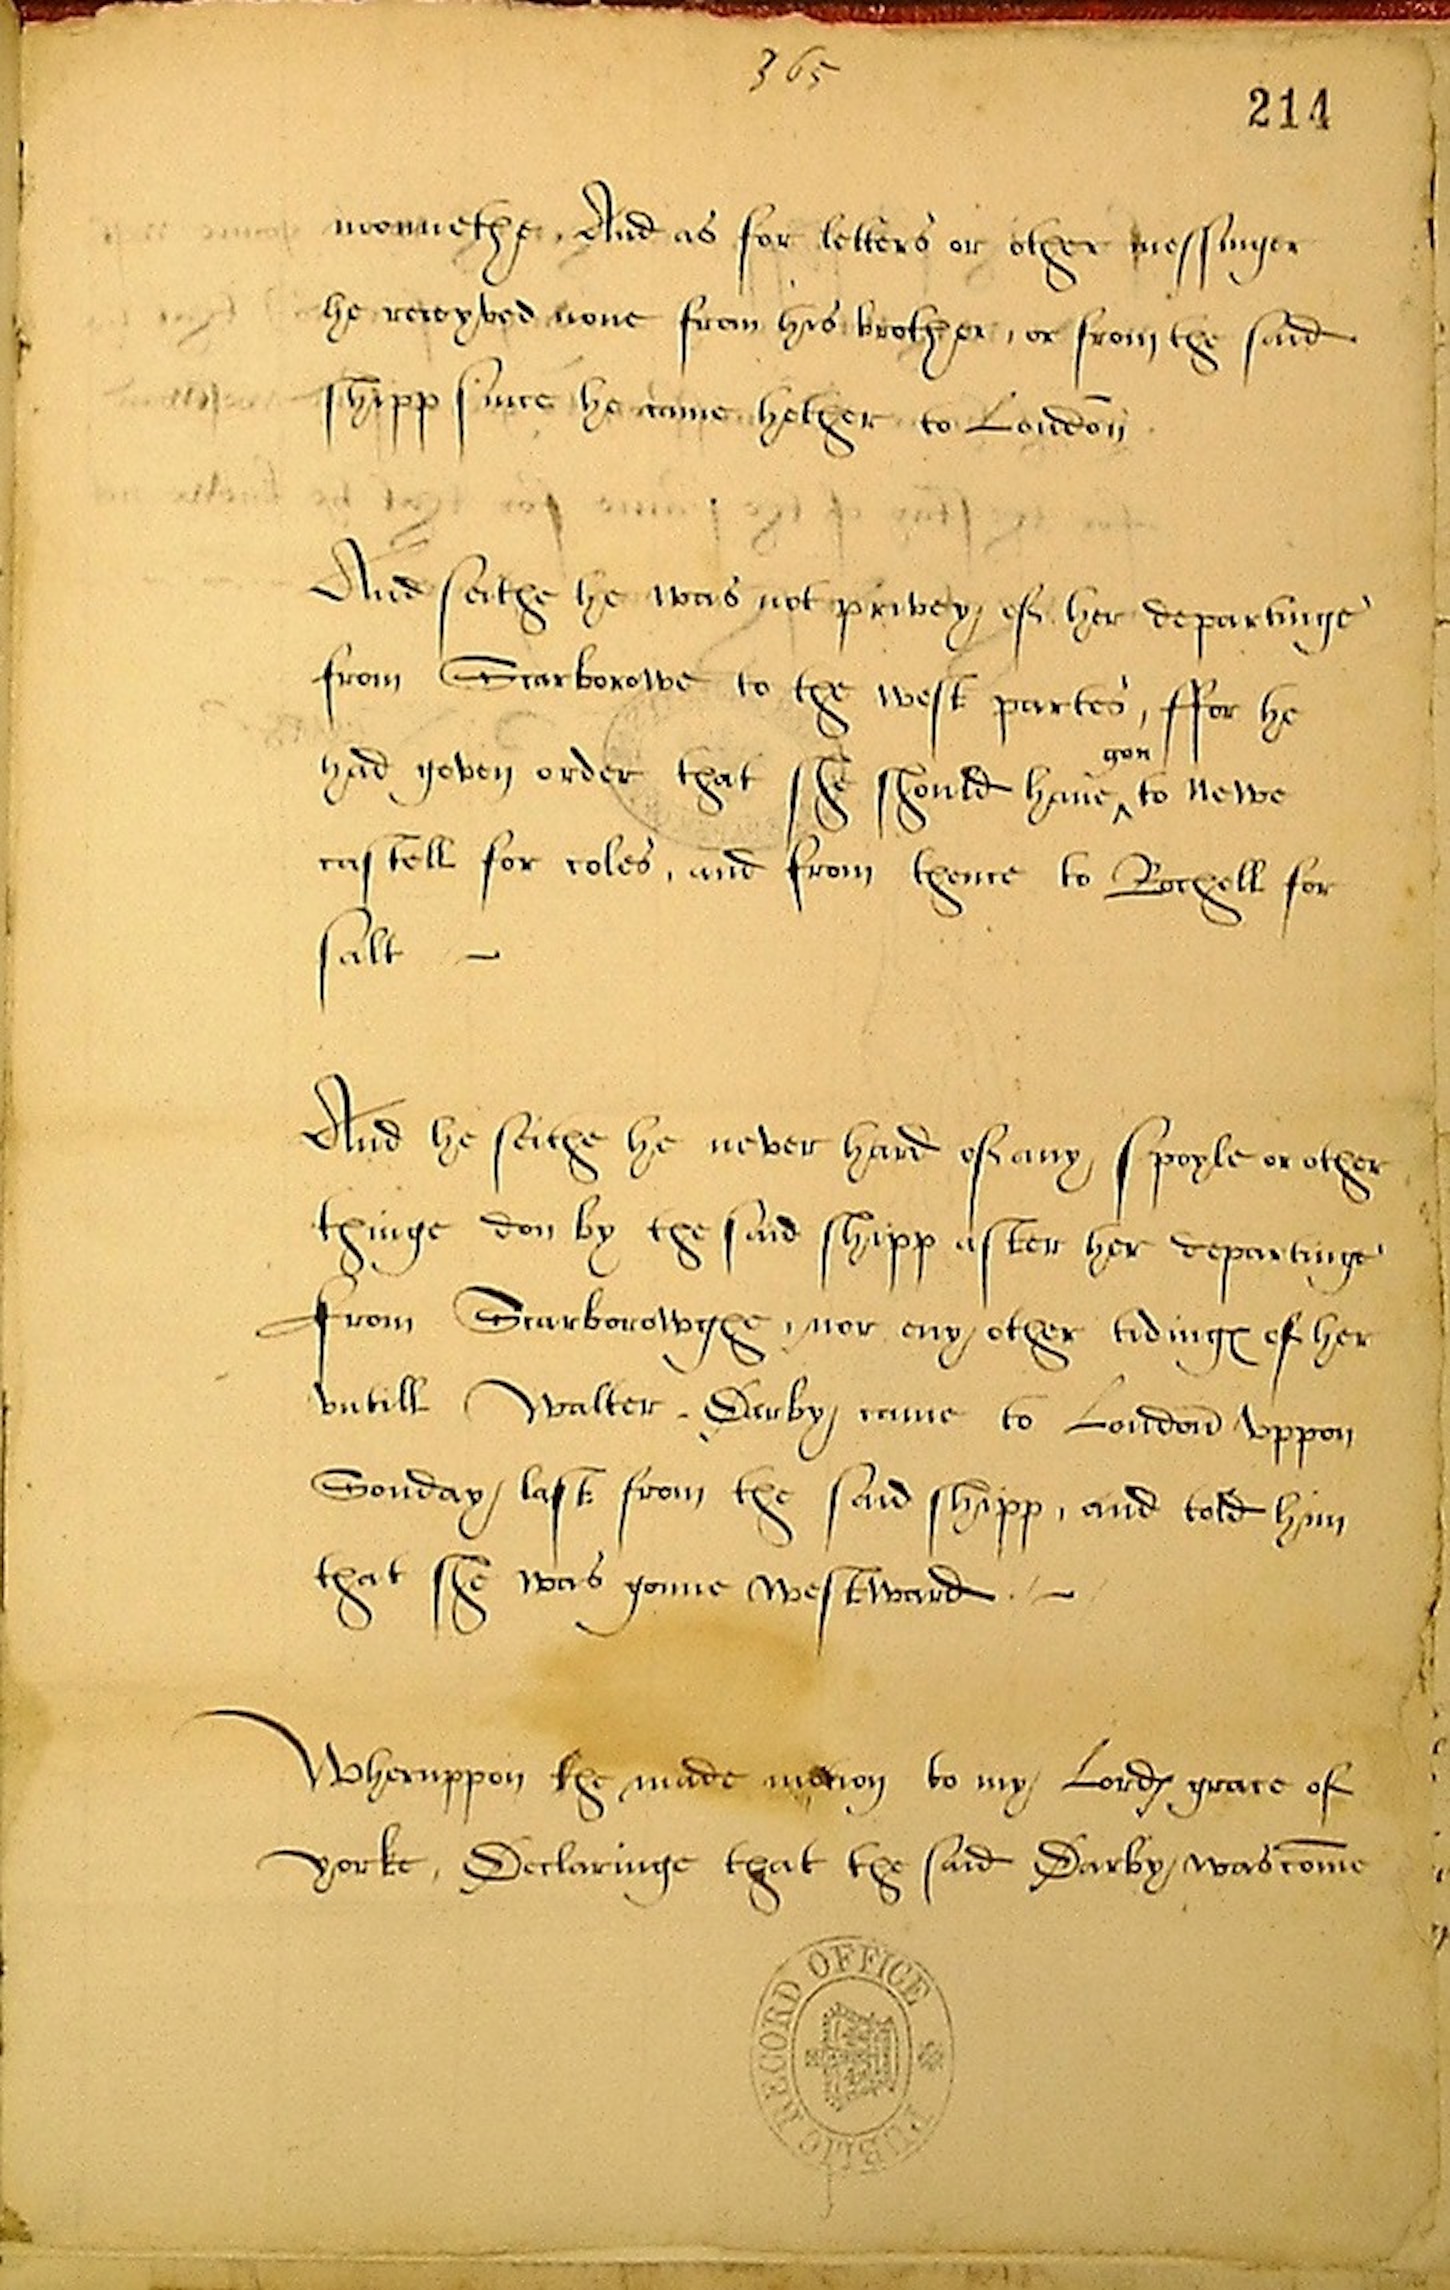 365
214
monnethe, And as for letters or other messinger
he receyved none from his brother, or from the said
shipp since he came hether to London
And seithe he was not privey of her departinge
from Scarborowe to the west partes, ffor he
gon
had geven order that she should haue ^ to newe
castell for coles, and from thence to Rochell for
salt
And he seithe he never hard of any spoyle or other
thinge don by the said shipp after her departinge
from Scarborowghe, nor eny other tidinges of her
vntill Walter Darby came to London vppon
Sonday last from the said shipp, and told him
that she was gonne westward
Wheruppon he made motion to my Lordes grace of
yorke, Declaringe that the said Darby was come
PUBLIC RECORD OFFICE